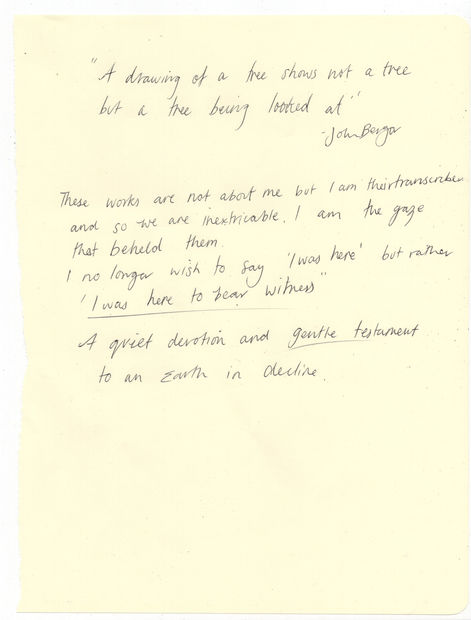 "A drawing of a tree shows not a tree
but a tree being looked at"
-John Berger
These works are not about me but I am their transcriber
and so we are inextricable. I am the gaze
that beheld them.
I no longer wish to say 'I was here' but rather
'I was here to bear witness"
A quiet devotion and gentle testament
to an Earth in decline.